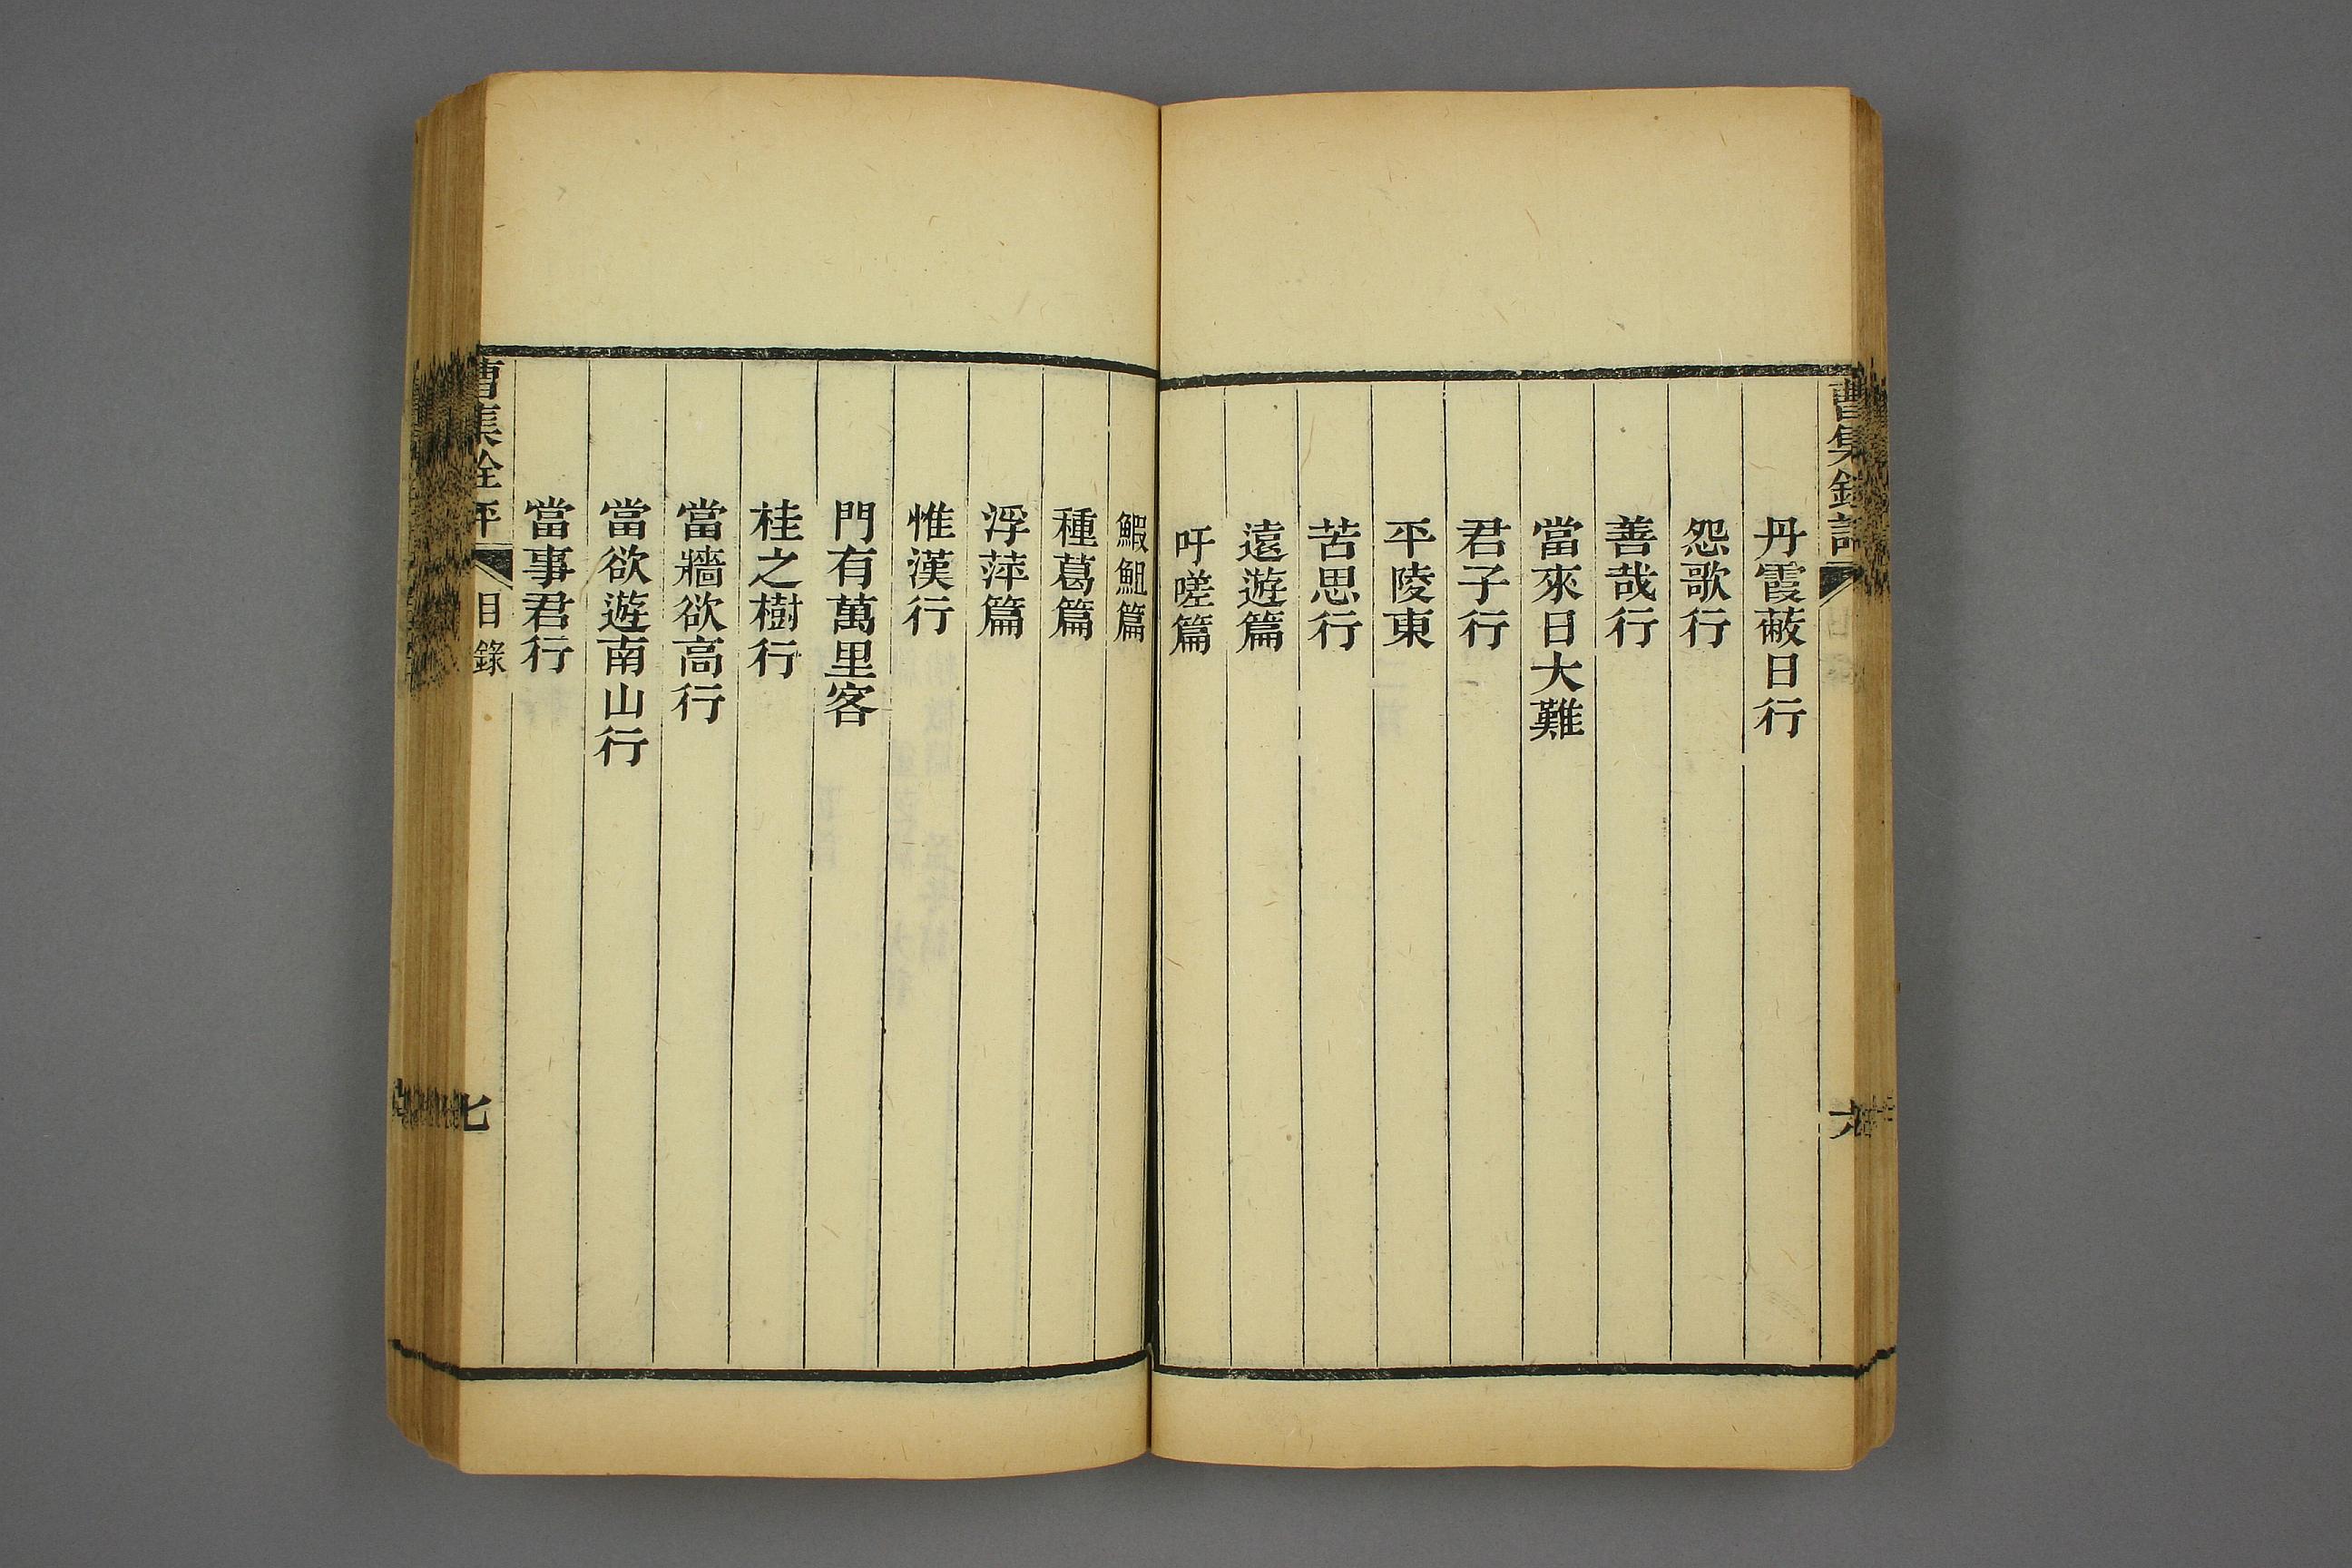 丹霞蔽日行
怨歌行
善哉行
當來日大難
君子行
平陵東
苦思行
遠遊篇
吁嗟篇
鰕䱇篇
種葛篇
浮萍篇
惟漢行
門有萬里客
桂之樹行
當牆欲高行
當欲遊南山行
當事君行
曹集銓評
目錄
七